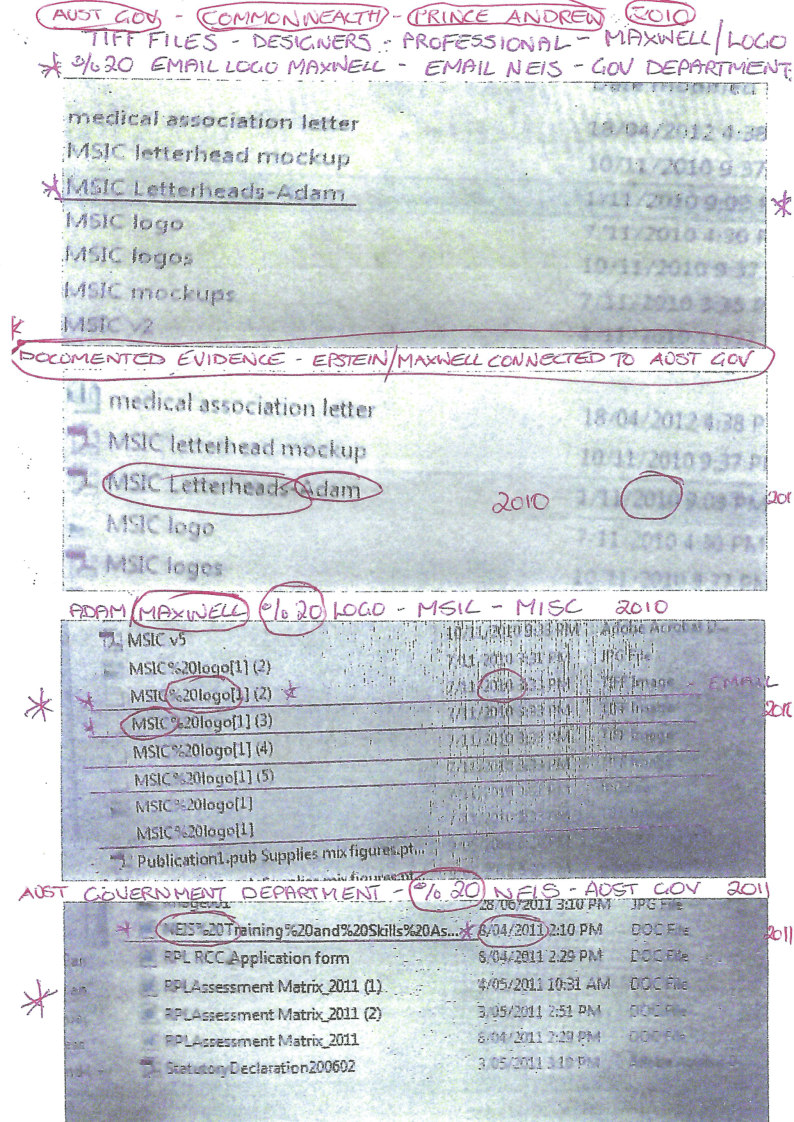 AUST GOV - COMMONWEALTH - PRINCE ANDREW 2010
TIFF FILES - DESIGNERS - PROFESSIONAL - MAXWELL/LOGO
* %20 EMAIL LOGO MAXWELL - EMAIL NEIS - GOV DEPARTMENT
Date modified
medical association letter 18/04/2012 4:38
MSIC letterhead mockup 10/11/2010 9:37
* MSIC Letterheads-Adam 1/11/2010 9:03 *
MSIC logo 7/11/2010 4:30 P
MSIC logos 10/11/2010 9:37
MSIC mockups 7/11/2010 3:35 P
MSIC v2
DOCUMENTED EVIDENCE - EPSTEIN/MAXWELL CONNECTED TO AUST GOV
medical association letter 18/04/2012 4:38 P
MSIC letterhead mockup 10/11/2010 9:37 PM
MSIC Letterheads-Adam 2010 1/11/2010 9:03 PM 201
MSIC logo 7/11/2010 4:30 PM
MSIC logos
ADAM MAXWELL %20 LOGO - MSIC - MISC 2010
MSIC v5 10/11/2010 9:33 PM Adobe Acrobat D...
MSIC%20logo[1] (2) 7/11/2010 3:31 PM JPG File
* MSIC%20logo[1] (2) * 7/11/2010 3:33 PM TIFF Image - EMAIL
* MSIC%20logo[1] (3) 7/11/2010 3:33 PM TIFF Image 2010
MSIC%20logo[1] (4)
MSIC%20logo[1] (5)
MSIC%20logo[1]
MSIC%20logo[1]
Publication1.pub Supplies mix figures.pt...
AUST GOVERNMENT DEPARTMENT - %20 NEIS - AUST GOV 2011
28/06/2011 3:10 PM JPG File
* NEIS%20Training%20and%20Skills%20As... * 8/04/2011 2:10 PM DOC File 2011
RPL RCC Application form 8/04/2011 2:29 PM DOC File
RPLAssessment Matrix_2011 (1) 4/05/2011 10:31 AM DOC File
RPLAssessment Matrix_2011 (2) 3/05/2011 2:51 PM DOC File
RPLAssessment Matrix_2011 8/04/2011 2:29 PM DOC File
StatutoryDeclaration200602 3/05/2011 3:10 PM